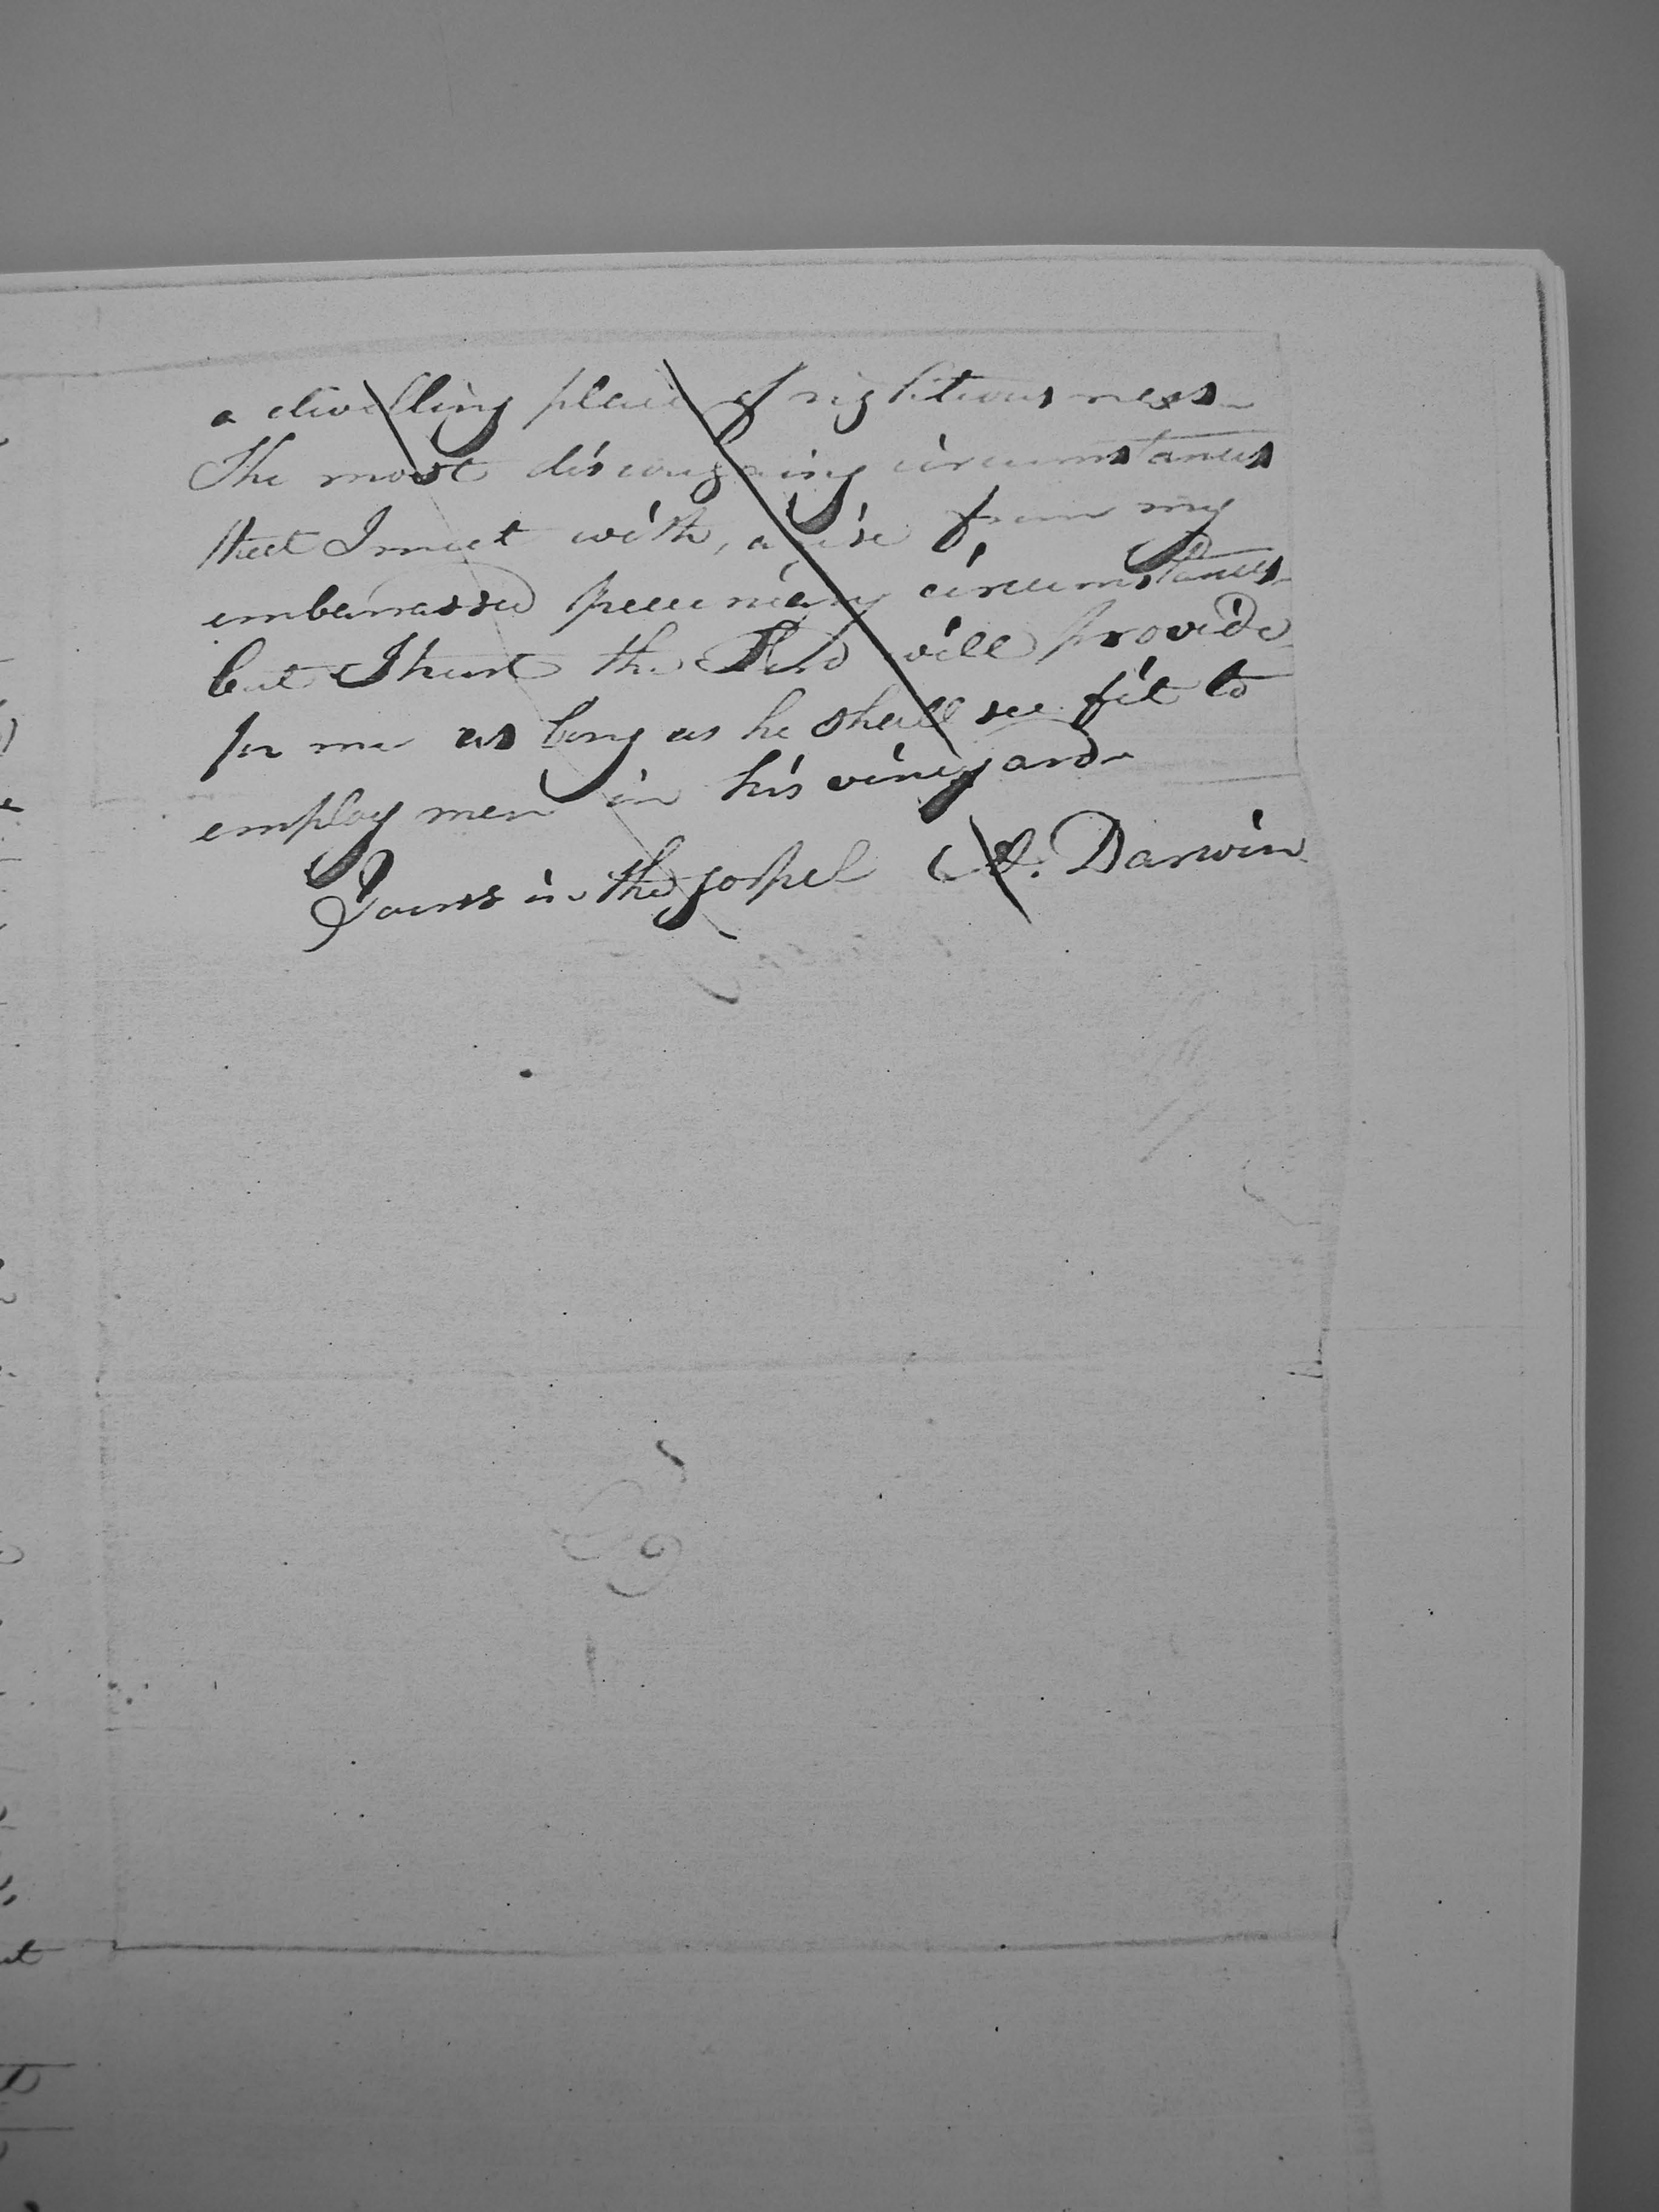 a dwelling place of rightiousness
The most discouraging circumstances
that I meet with, arise from my
embarrassed pecuniary circumstances
but I trust the Lord will provide
for me as long as he shall see fit to
employ me in his vineyard
Yours in the gospel A. Darwin